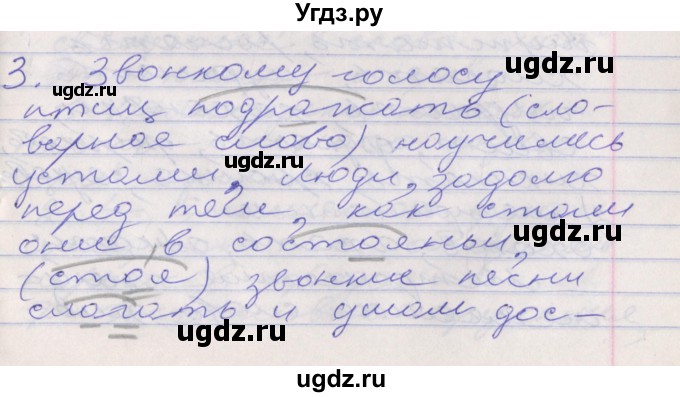 Угдз.ру
3. Звонкому голосу
птиц подражать (сло-
ugdz.ru
варное слово) научились
ugdz.ru
устами люди, задолго
перед тем, как стали
ugdz.ru
они в состояньи,
(стоя) звонкие песни
слагать и умом дос-
ugdz.ru
ugdz.ru